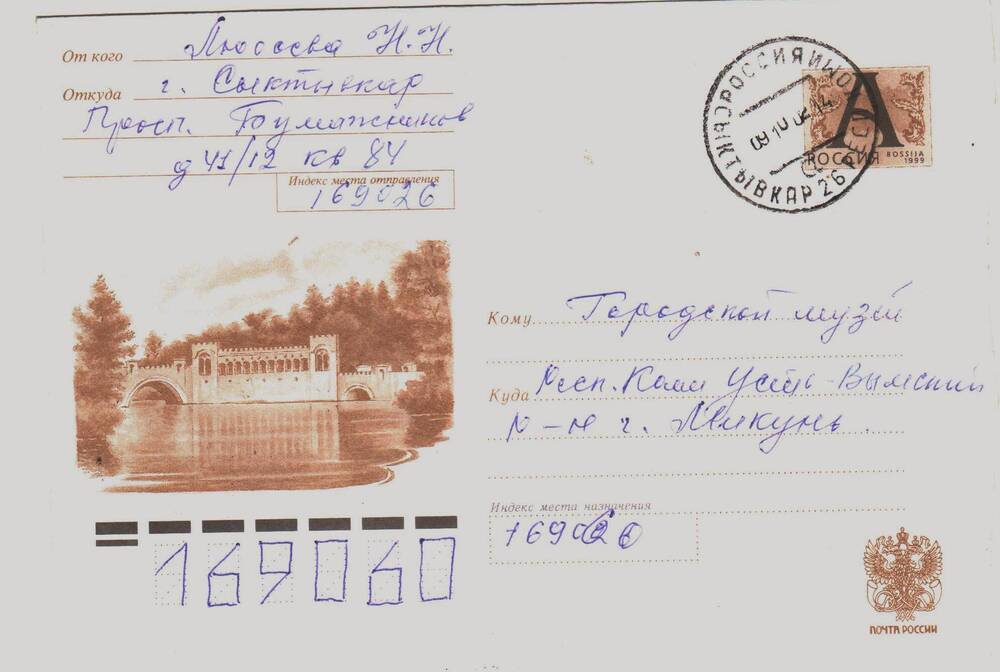 От кого Люосева Н.Н.
Откуда г. Сыктывкар
Просп. Бумажников
д 41/12 кв 84
Индекс места отправления
169026
СЫКТЫВКАР 26 РЕСП КОМИ РОССИЯ
09 10 02 14
А
РОССИЯ
ROSSIJA
1999
Кому Городской музей
Куда Респ. Коми Усть-Вымский
р-н г. Микунь.
Индекс места назначения
169060
169060
ПОЧТА РОССИИ